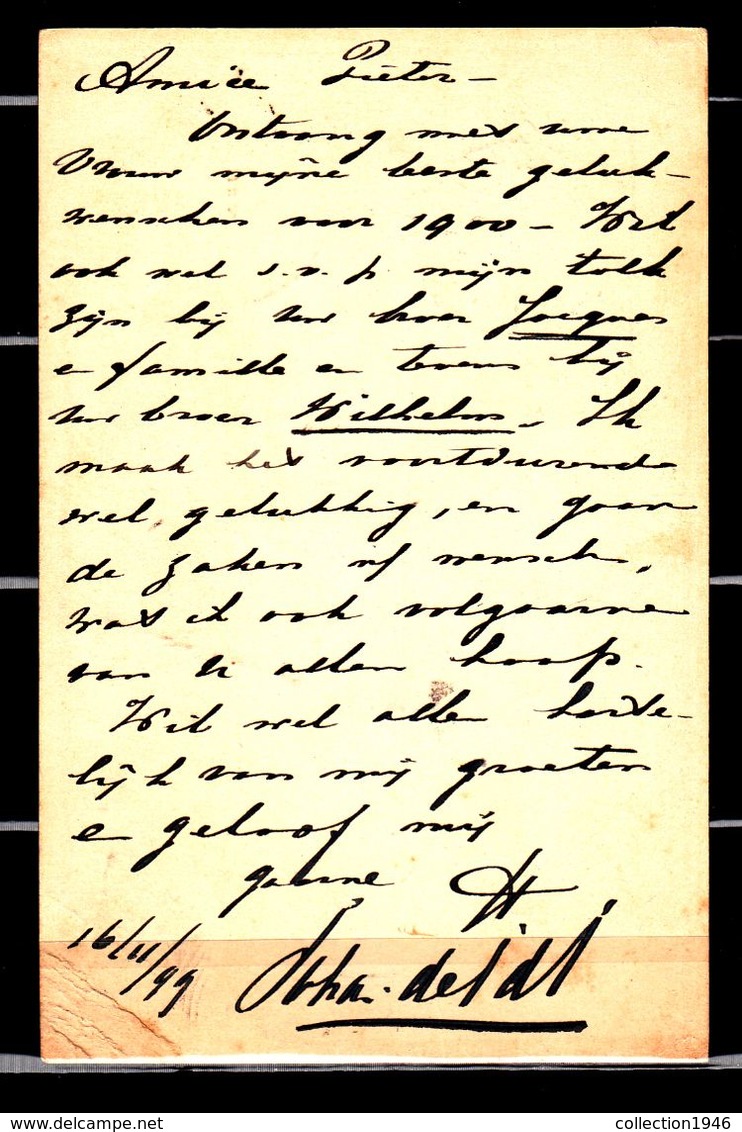 Amice Pieter -
Ontvang met uwe
Vrouw mijne beste geluk-
wenschen voor 1900 - Wil
ook wel s.v.p. mijn tolk
zijn bij uw broer Jacques
e familie en tevens bij
uw broer Wilhelm. Ik
maak het voortdurend
wel gelukkig, en gaan
de zaken nf wensch,
wat ik ook volgaarne
van U allen hoop.
Wil wel allen harte-
lijk van mij groeten
e geloof mij
gaarne
16/11/99
collection1946